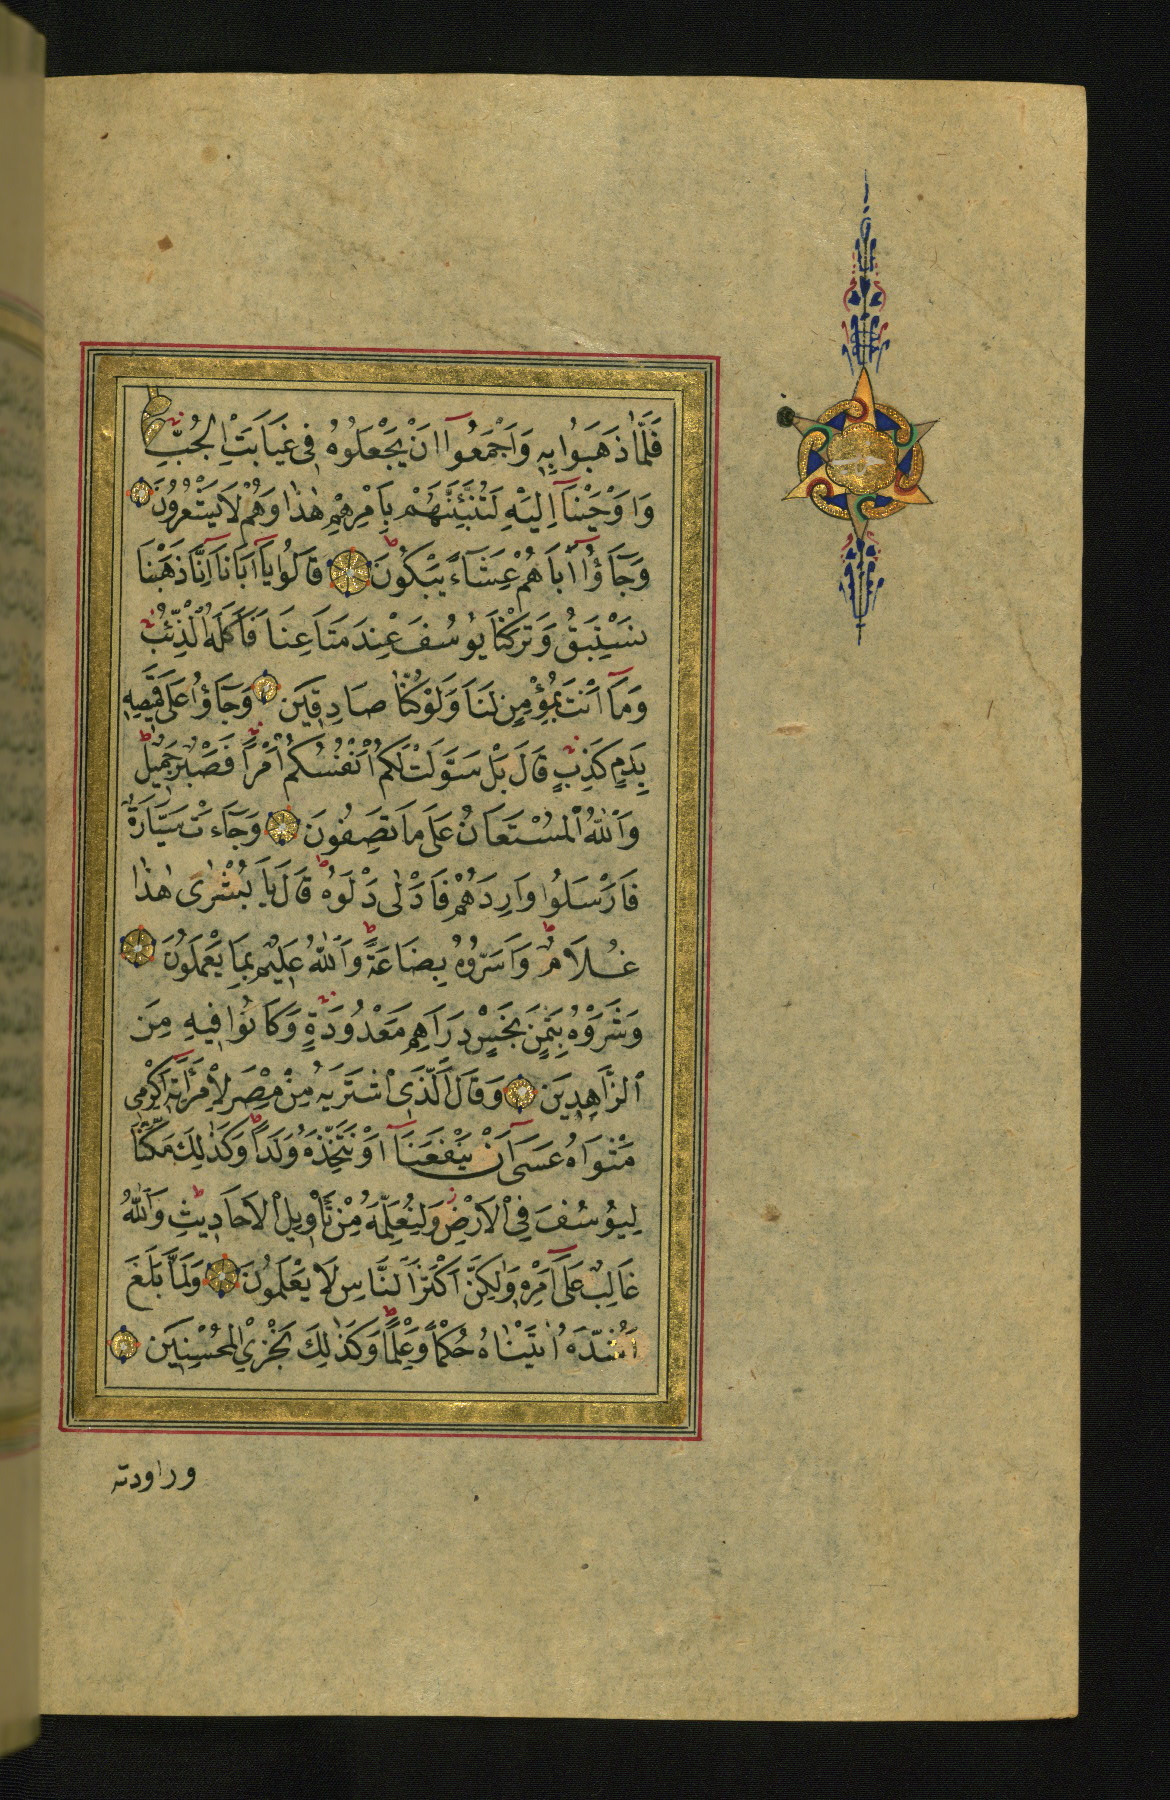 فَلَمَّا ذَهَبُوا بِهِ وَاَجْمَعُوآ اَنْ يَجْعَلُوهُ فِى غَيَابَتِ الْجُبِّ
وَاَوْحَيْنَآ اِلَيْهِ لَتُنَبِّئَنَّهُمْ بِاَمْرِهِمْ هٰذَا وَهُمْ لَا يَشْعُرُونَ
وَجَآؤُآ اَبَاهُمْ عِشَآءً يَبْكُونَ قَالُوا يَآ اَبَانَآ اِنَّا ذَهَبْنَا
نَسْتَبِقُ وَتَرَكْنَا يُوسُفَ عِنْدَ مَتَاعِنَا فَاَكَلَهُ الذِّئْبُ
وَمَآ اَنْتَ بِمُؤْمِنٍ لَنَا وَلَوْ كُنَّا صَادِقِينَ وَجَآؤُ عَلَى قَمِيصِهِ
بِدَمٍ كَذِبٍ قَالَ بَلْ سَوَّلَتْ لَكُمْ اَنْفُسُكُمْ اَمْرًا فَصَبْرٌ جَمِيلٌ
وَاللّٰهُ الْمُسْتَعَانُ عَلَى مَا تَصِفُونَ وَجَآءَتْ سَيَّارَةٌ
فَاَرْسَلُوا وَارِدَهُمْ فَاَدْلٰى دَلْوَهُ قَالَ يَا بُشْرٰى هٰذَا
غُلَامٌ وَاَسَرُّوهُ بِضَاعَةً وَاللّٰهُ عَلِيمٌ بِمَا يَعْمَلُونَ
وَشَرَوْهُ بِثَمَنٍ بَخْسٍ دَرَاهِمَ مَعْدُودَةٍ وَكَانُوا فِيهِ مِنَ
الزَّاهِدِينَ وَقَالَ الَّذِى اشْتَرَيهُ مِنْ مِصْرَ لِامْرَاَتِهِ اَكْرِمِى
مَثْوَاهُ عَسَىٓ اَنْ يَنْفَعَنَآ اَوْ نَتَّخِذَهُ وَلَدًا وَكَذٰلِكَ مَكَّنَّا
لِيُوسُفَ فِى الْاَرْضِ وَلِنُعَلِّمَهُ مِنْ تَاْوِيلِ الْاَحَادِيثِ وَاللّٰهُ
غَالِبٌ عَلَىٓ اَمْرِهِ وَلٰكِنَّ اَكْثَرَ النَّاسِ لَا يَعْلَمُونَ وَلَمَّا بَلَغَ
اَشُدَّهُ اٰتَيْنَاهُ حُكْمًا وَعِلْمًا وَكَذٰلِكَ نَجْزِى الْمُحْسِنِينَ
وراودته